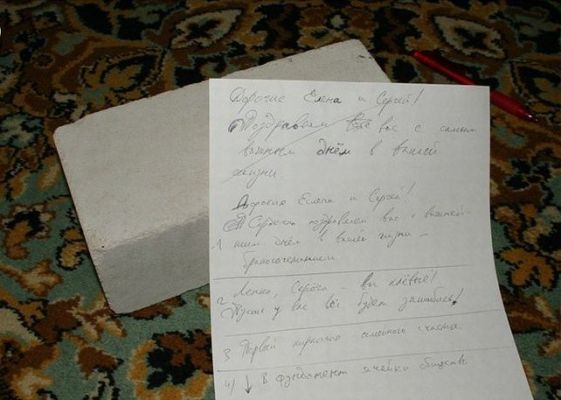 Дорогие Елена и Сергей!
Поздравляем Вас вас с самым
важным днём в вашей
жизни
Дорогие Елена и Сергей!
Сердечно поздравляем вас с важней-
1 шим днём в вашей жизни –
бракосочетанием
2 Ленка, Серёга – вы клёвые!
Пусть у вас всё будет зашибись!
3 Первый кирпичик семейного счастья
4) ↓ В фундамент ячейки общества